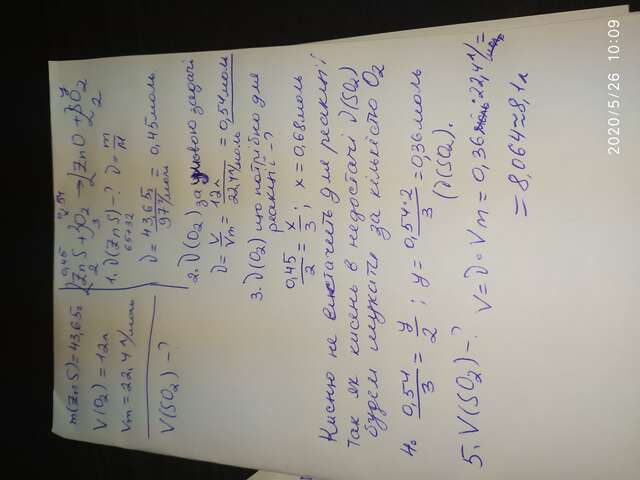 m(ZnS)=43,65г
V(O2)=12л
Vm=22,4 л/моль
V(SO2)-?
0,45 0,54 y
2ZnS+3O2→2ZnO+2SO2
2 3 2
1. ν(ZnS)-? ν=m/M
65+32
ν=43,65г/97г/моль=0,45моль
2. ν(O2) за умовою задачі
ν=V/Vm=12л/22,4л/моль=0,54моль
3. ν(O2) що потрібно для
реакції-?
0,45/2=x/3; x=0,68моль
Кисню не вистачить для реакції
Так як кисень в недостачі ν(SO2)
будем шукати за кількістю O2
4. 0,54/3=y/2; y=0,54·2/3=0,36моль
(ν(SO2).
5. V(SO2)-? V=ν·Vm=0,36моль·22,4л/моль=
=8,064≈8,1л
2020/5/26 10:09